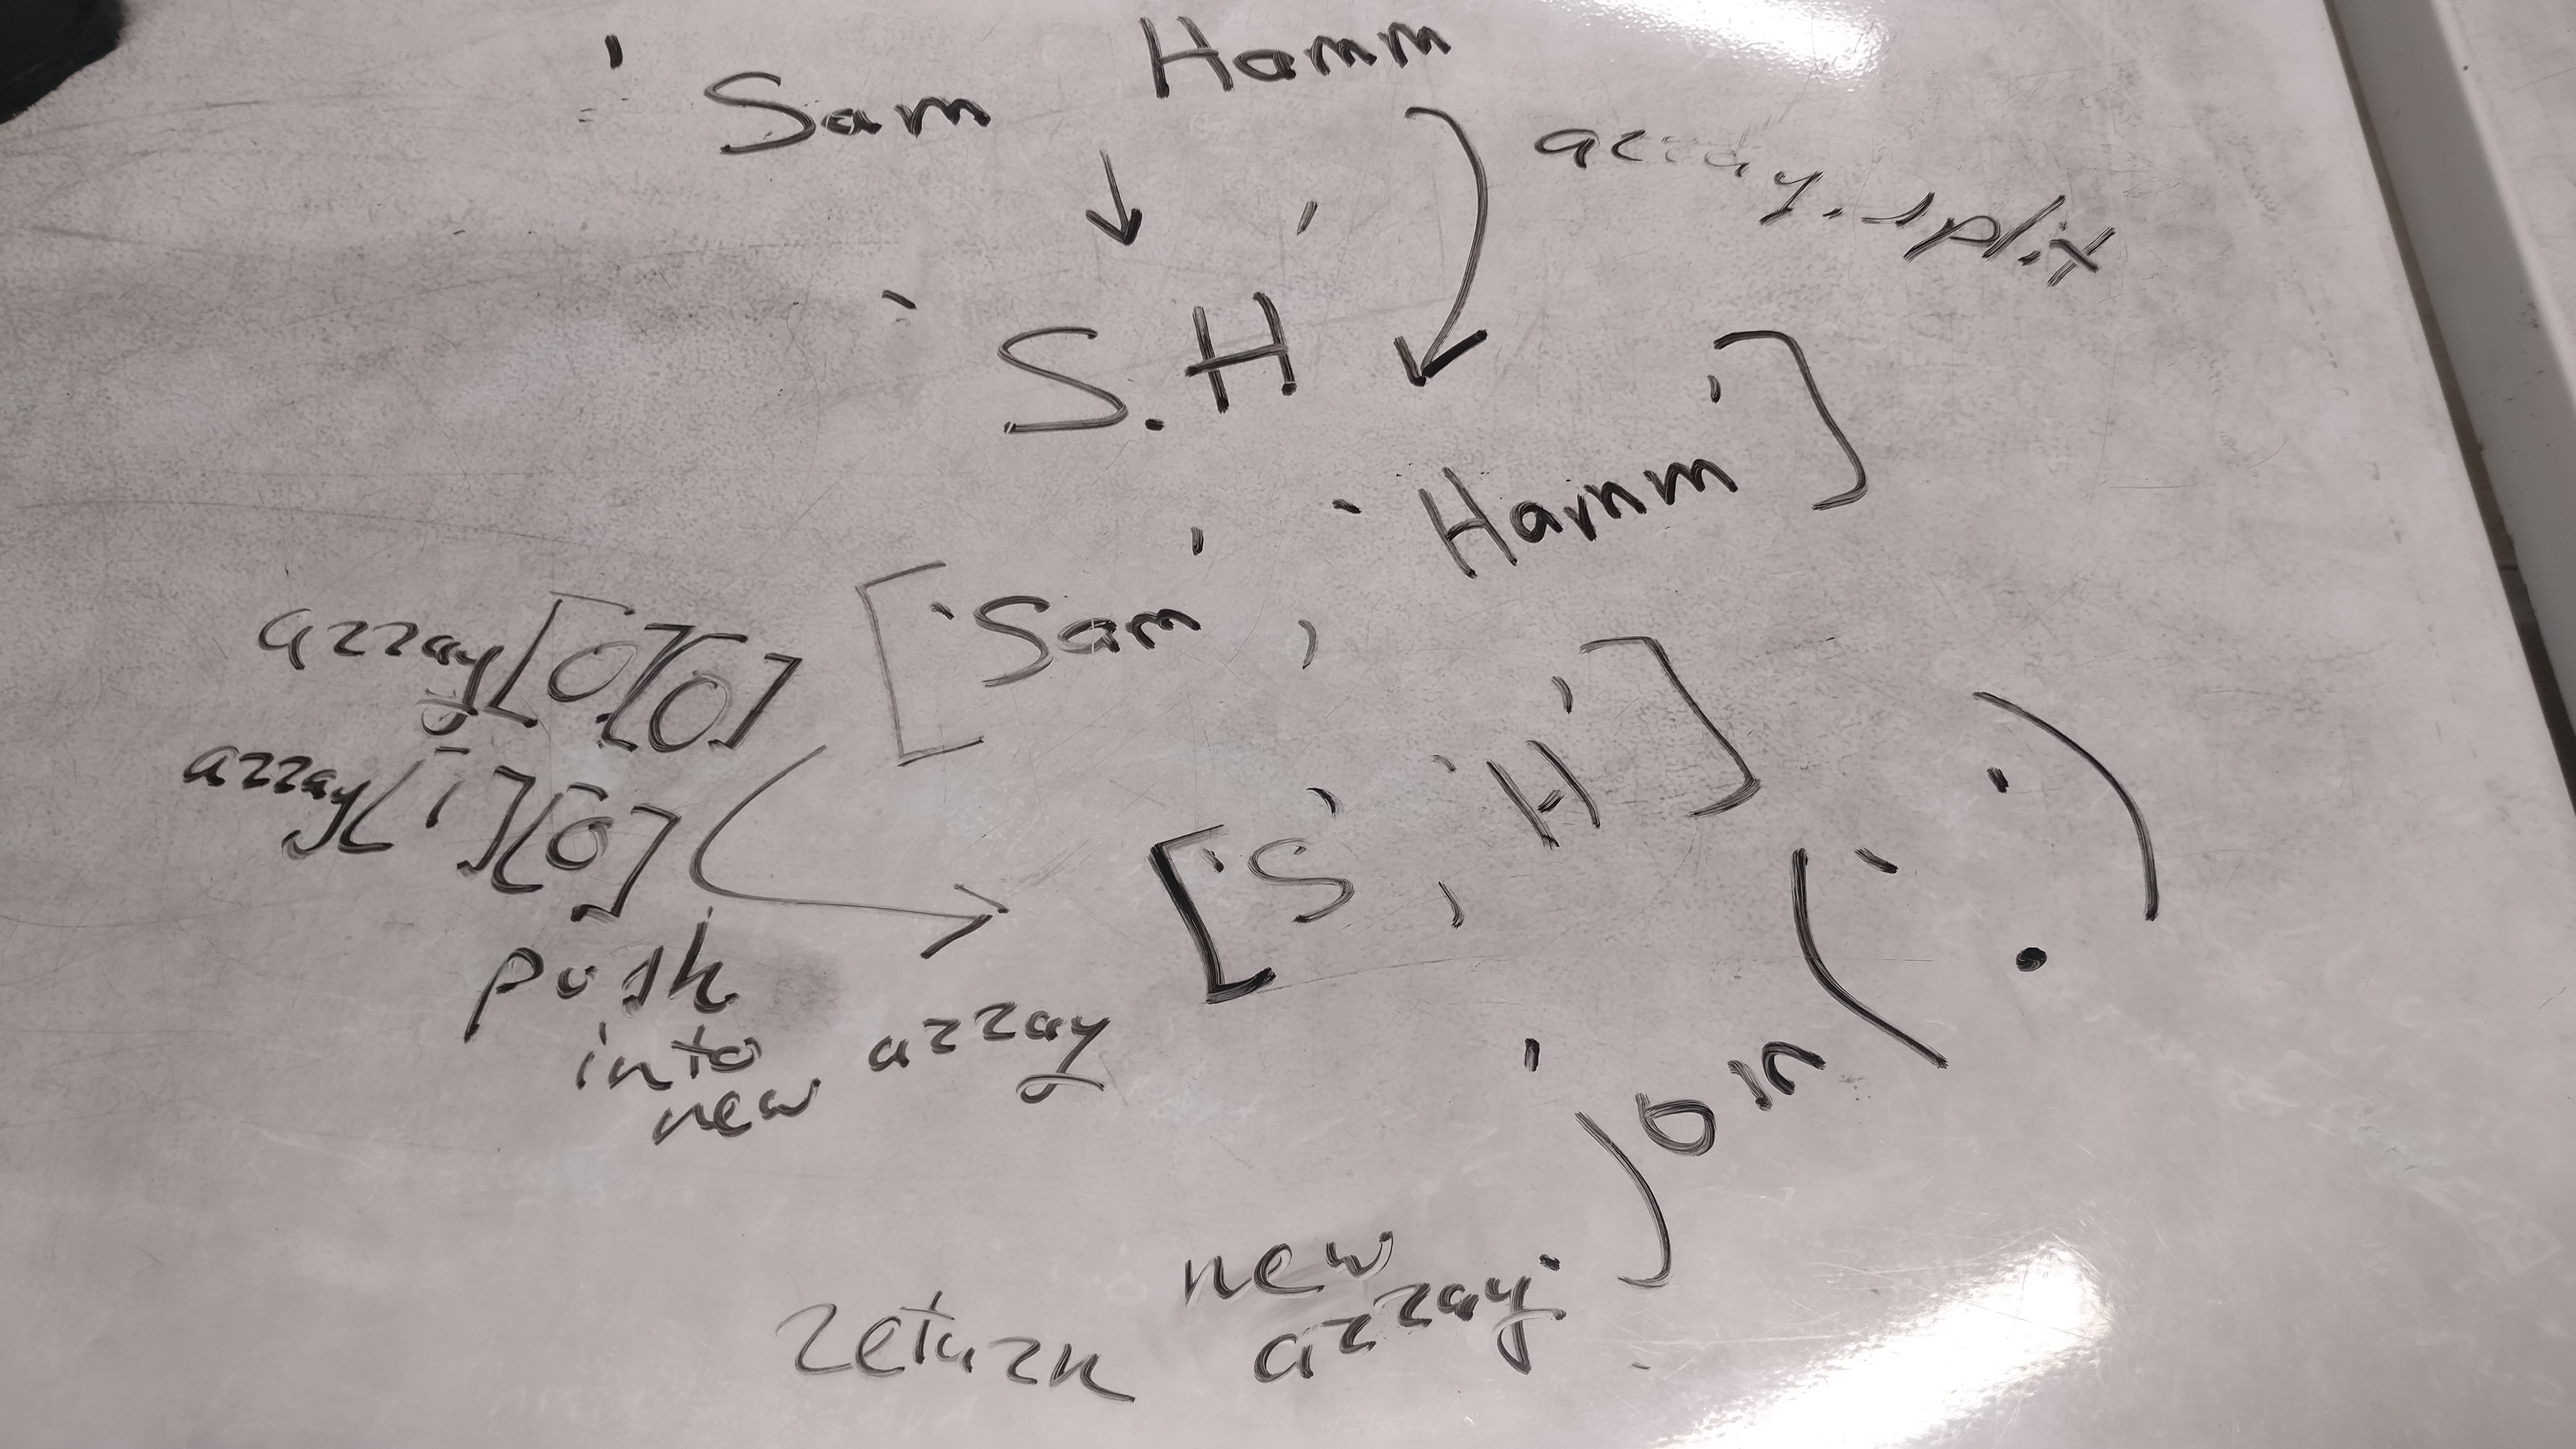 ' Sam Hamm
array.split
'S.H'
['Sam', 'Hamm']
array[0][0]
array[1][0]
['S', 'H']
push
into
new array
join('.')
return new
array.